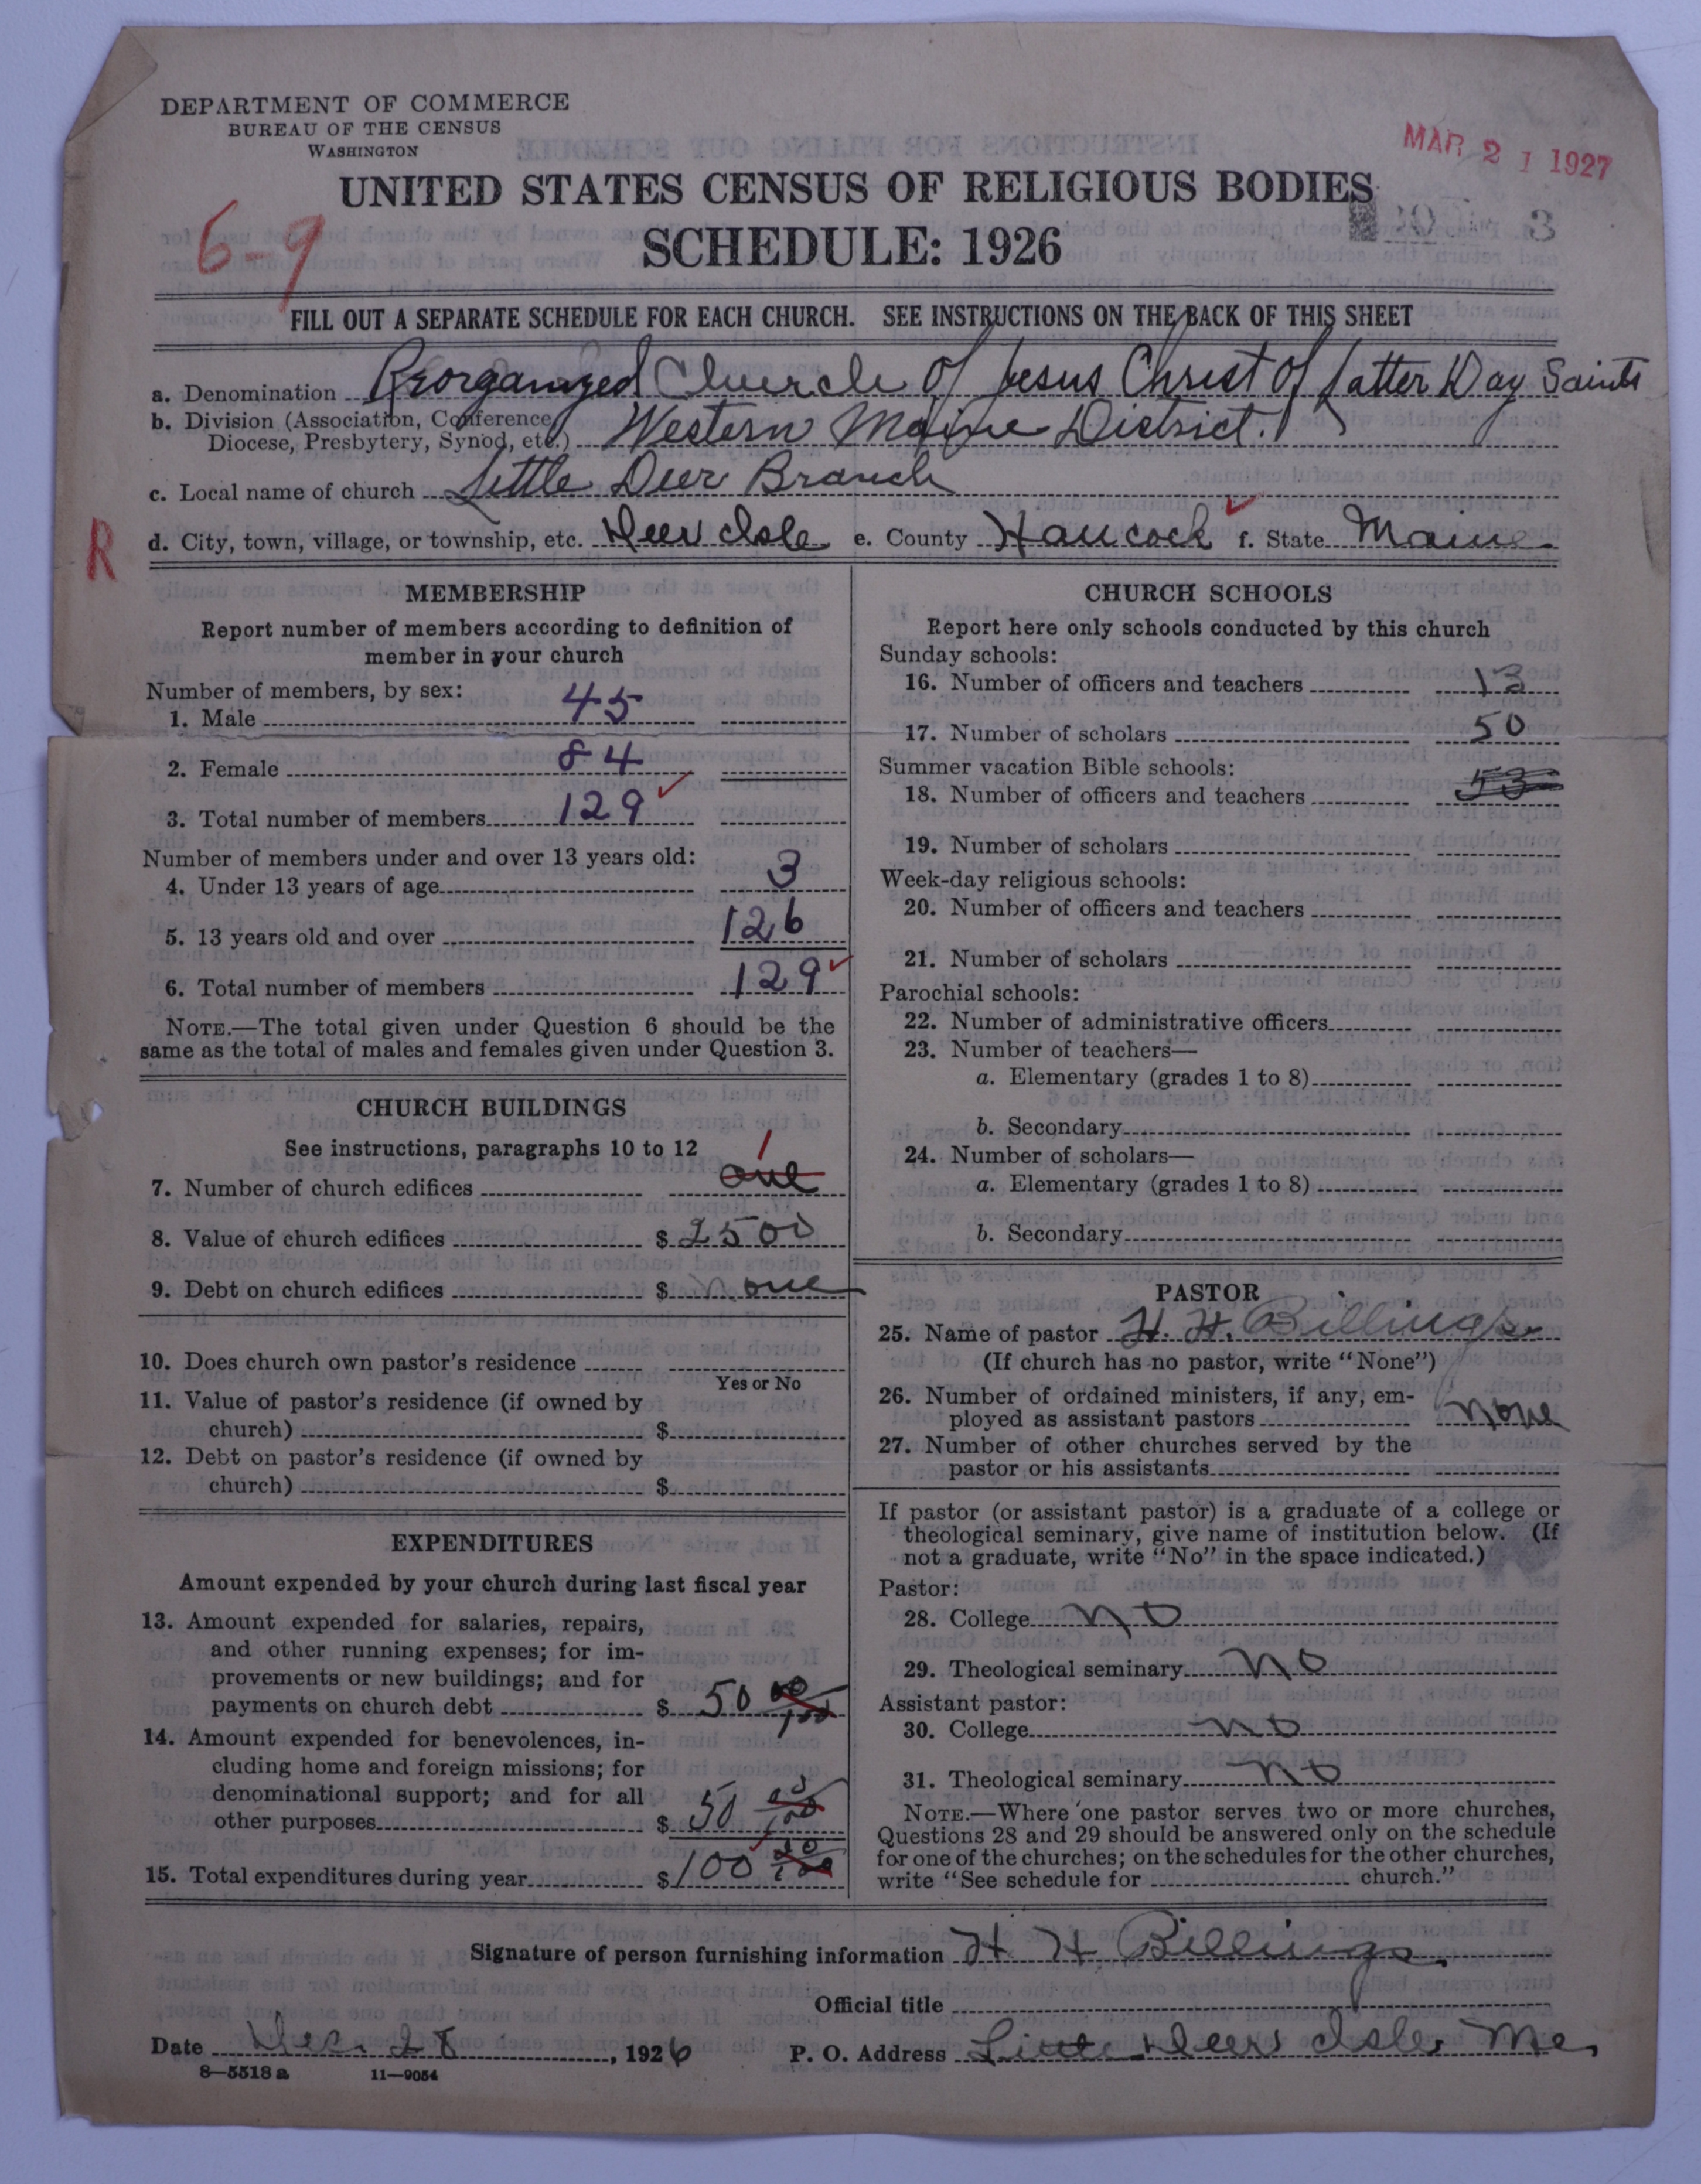 DEPARTMENT OF COMMERCE
BUREAU OF THE CENSUS
WASHINGTON
MAR 21 1927
UNITED STATES CENSUS OF RELIGIOUS BODIES
SCHEDULE: 1926
6-9
FILL OUT A SEPARATE SCHEDULE FOR EACH CHURCH. SEE INSTRUCTIONS ON THE BACK OF THIS SHEET
a. Denomination Reorganized Church of Jesus Christ Of Latter Day Saints
b. Division (Association, Conference, Diocese, Presbytery, Synod, etc.) Western Maine District.
c. Local name of church Little Deer Branch
R
d. City, town, village, or township, etc. Deer Isle e. County Hancock f. State Maine
MEMBERSHIP
Report number of members according to definition of
member in your church
Number of members, by sex:
1. Male 45
2. Female 84
3. Total number of members 129
Number of members under and over 13 years old:
4. Under 13 years of age 3
5. 13 years old and over 126
6. Total number of members 129
NOTE.—The total given under Question 6 should be the
same as the total of males and females given under Question 3.
CHURCH BUILDINGS
See instructions, paragraphs 10 to 12
7. Number of church edifices one 1
8. Value of church edifices $ 2500
9. Debt on church edifices $ none
10. Does church own pastor's residence
Yes or No
11. Value of pastor's residence (if owned by
church) $
12. Debt on pastor's residence (if owned by
church) $
EXPENDITURES
Amount expended by your church during last fiscal year
13. Amount expended for salaries, repairs,
and other running expenses; for im-
provements or new buildings; and for
payments on church debt $ 50 00/100
14. Amount expended for benevolences, in-
cluding home and foreign missions; for
denominational support; and for all
other purposes $ 50 00/100
15. Total expenditures during year $ 100 00/100
CHURCH SCHOOLS
Report here only schools conducted by this church
Sunday schools:
16. Number of officers and teachers 13
17. Number of scholars 50
Summer vacation Bible schools:
18. Number of officers and teachers 53
19. Number of scholars
Week-day religious schools:
20. Number of officers and teachers
21. Number of scholars
Parochial schools:
22. Number of administrative officers
23. Number of teachers—
a. Elementary (grades 1 to 8)
b. Secondary
24. Number of scholars—
a. Elementary (grades 1 to 8)
b. Secondary
PASTOR
25. Name of pastor H. H. Billings
(If church has no pastor, write "None")
26. Number of ordained ministers, if any, em-
ployed as assistant pastors none
27. Number of other churches served by the
pastor or his assistants
If pastor (or assistant pastor) is a graduate of a college or
theological seminary, give name of institution below. (If
not a graduate, write "No" in the space indicated.)
Pastor:
28. College no
29. Theological seminary no
Assistant pastor:
30. College no
31. Theological seminary no
NOTE.—Where one pastor serves two or more churches,
Questions 28 and 29 should be answered only on the schedule
for one of the churches; on the schedules for the other churches,
write "See schedule for church."
Signature of person furnishing information H H Billings
Official title
Date Dec. 28, 1926 P. O. Address Little Deer Isle, Me.
8—5518 a 11—9054